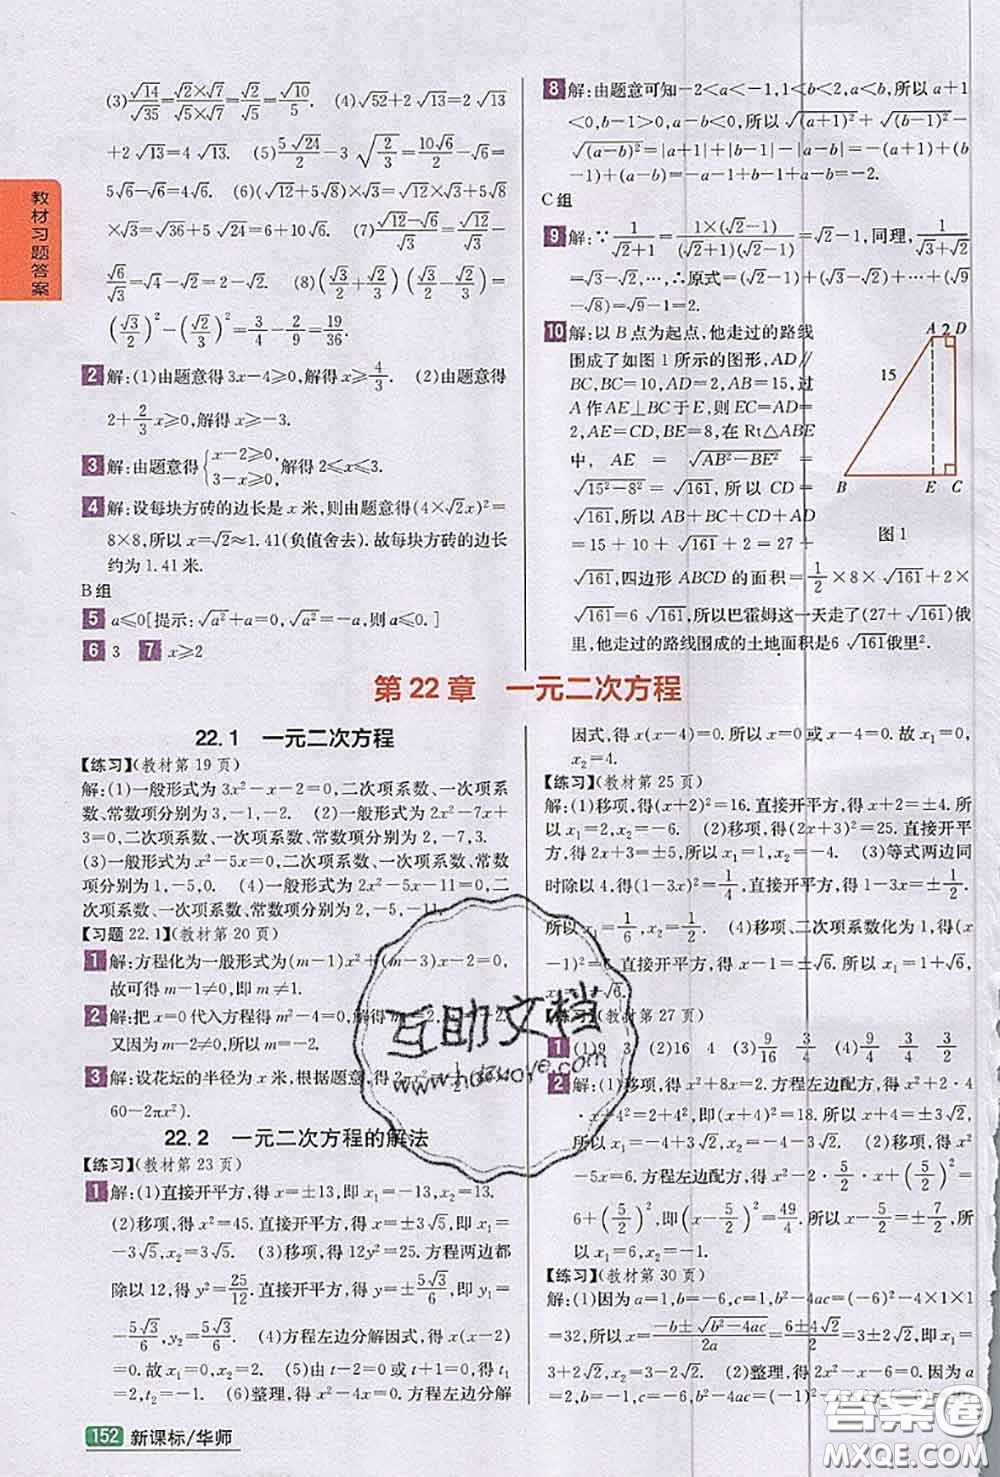 (3)√14/√35=(√2×√7)/(√5×√7)=√2/√5=√10/5. (4)√52+2√13=2√13
+2√13=4√13. (5)5√24/2-3√(2/3)=10√6/2-√6=
5√6-√6=4√6. (6)(√12+5√8)×√3=√12×√3+5√8
×√3=√36+5√24=6+10√6. (7)(√12-√6)/√3=√12/√3-
√6/√3=√4-√2=2-√2. (8)(√3/2+√2/3)(√3/2-√2/3)=
(√3/2)²-(√2/3)²=3/4-2/9=19/36.
2 解:(1)由题意得3x-4≥0,解得x≥4/3. (2)由题意得
2+2/3x≥0,解得x≥-3.
3 解:由题意得{x-2≥0, 3-x≥0, 解得2≤x≤3.
4 解:设每块方砖的边长是x米,由题意可知(4×√2x)²=
8×8,所以x=√2≈1.41(负值舍去).故每块方砖的边长
约为1.41米.
B组
5 a≤0[提示:√a²+a=0,所以√a²=-a,则a≤0.]
6 3 7 x≥2
教材习题答案
8 解:由题意可知-2<a<-1,1<b<2,a<b,所以a+1
<0,b-1>0,a-b<0,所以√(a+1)²+√(b-1)²-
√(a-b)²=|a+1|+|b-1|-|a-b|=-(a+1)+(b-
1)+(a-b)=-a-1+b-1+a-b=-2.
C组
9 解:∵1/(√2+1)=1×(√2-1)/(√2+1)(√2-1)=√2-1,同理,1/(√3+√2)
=√3-√2,…,∴原式=(√2-1)+(√3-√2)+…+(√9
-√8)=√9-1=2.
10 解:以B点为起点,他走过的路线
围成了如图1所示的图形,AD∥
BC,BC=10,AD=2,AB=15,过
A作AE⊥BC于E,则EC=AD=
2,AE=CD,BE=8,在Rt△ABE
中,AE=√(AB²-BE²)=
√(15²-8²)=√161,所以CD=
√161,所以AB+BC+CD+AD
=15+10+√161+2=27+
√161,四边形ABCD的面积=1/2×8×√161+2×
√161=6√161,所以巴霍姆这一天走了(27+√161)俄
里,他走过的路线围成的土地面积是6√161俄里².
A 2 D
15
B E C
图1
第22章 一元二次方程
22.1 一元二次方程
【练习】(教材第19页)
解:(1)一般形式为3x²-x-2=0,二次项系数、一次项系
数、常数项分别为3,-1,-2. (2)一般形式为2x²-7x
+3=0,二次项系数、一次项系数、常数项分别为2,-7,3.
(3)一般形式为x²-5x=0,二次项系数、一次项系数、常数
项分别为1,-5,0. (4)一般形式为2x²-5x-11=0,二
次项系数、一次项系数、常数项分别为2,-5,-11.
【习题22.1】(教材第20页)
1 解:方程化为一般形式为(m-1)x²+(m-3)x-2=0,
故可得m-1≠0,则m≠1.
2 解:把x=0代入方程得m²-4=0,
又因为m-2≠0,所以m=-2.
3 解:设花坛的半径为x米,根据题意,得
60-2πx²).
22.2 一元二次方程的解法
【练习】(教材第23页)
1 解:(1)直接开平方,得x=±13,即x₁=-13,x₂=13.
(2)移项,得x²=45.直接开平方,得x=±3√5,即x₁=
-3√5,x₂=3√5. (3)移项,得12y²=25.方程两边都
除以12,得y²=25/12.直接开平方,得y=±5√3/6,即y₁=
-5√3/6,y₂=5√3/6. (4)方程左边分解因式,得x(x-2)
=0.故x₁=0,x₂=2. (5)由t-2=0或t+1=0,得t₁
=2,t₂=-1. (6)整理,得x²-4x=0.方程左边分解
因式,得x(x-4)=0.所以x=0或x-4=0.故x₁=0,
x₂=4.
【练习】(教材第25页)
解:(1)移项,得(x+2)²=16.直接开平方,得x+2=±4.
所以x₁=2,x₂=-6. (2)移项,得(2x+3)²=25.直接开平
方,得2x+3=±5,所以x₁=1,x₂=-4. (3)等式两边同
时除以4,得(1-3x)²=1/4,直接开平方,得1-3x=±1/2,
所以x₁=1/6,x₂=1/2. (4)移项、二次项系数化为1,得(x
-1)²=6.直接开平方,得x-1=±√6.所以x₁=1+√6,
x₂=1-√6.
【练习】(教材第27页)
1 (1)9 3 (2)16 4 (3)9/16 3/4 (4)
2 解:(1)移项,得x²+8x=2.方程左边配方,得x²+2·4·
x+4²=2+4²,即(x+4)²=18.所以x+4=±3√2.所以
x₁=-4+3√2,x₂=-4-3√2. (2)移项,得x²
-5x=6.方程左边配方,得x²-2·5/2·x+(5/2)²=
6+(5/2)²,即(x-5/2)²=49/4.所以x-5/2=±7/2,
所以x₁=6,x₂=-1.
【练习】(教材第30页)
解:(1)因为a=1,b=-6,c=1,b²-4ac=(-6)²-4×1×1
=32,所以x=(-b±√(b²-4ac))/2a=(6±4√2)/2=3±2√2,即x₁=
3+2√2,x₂=3-2√2. (2)整理,得2x²-x-6=0.因为
a=2,b=-1,c=-6,b²-4ac=(-1)²
互助文档
www.hdzuoye.com
152 新课标/华师
答案圈
MXQE.COM